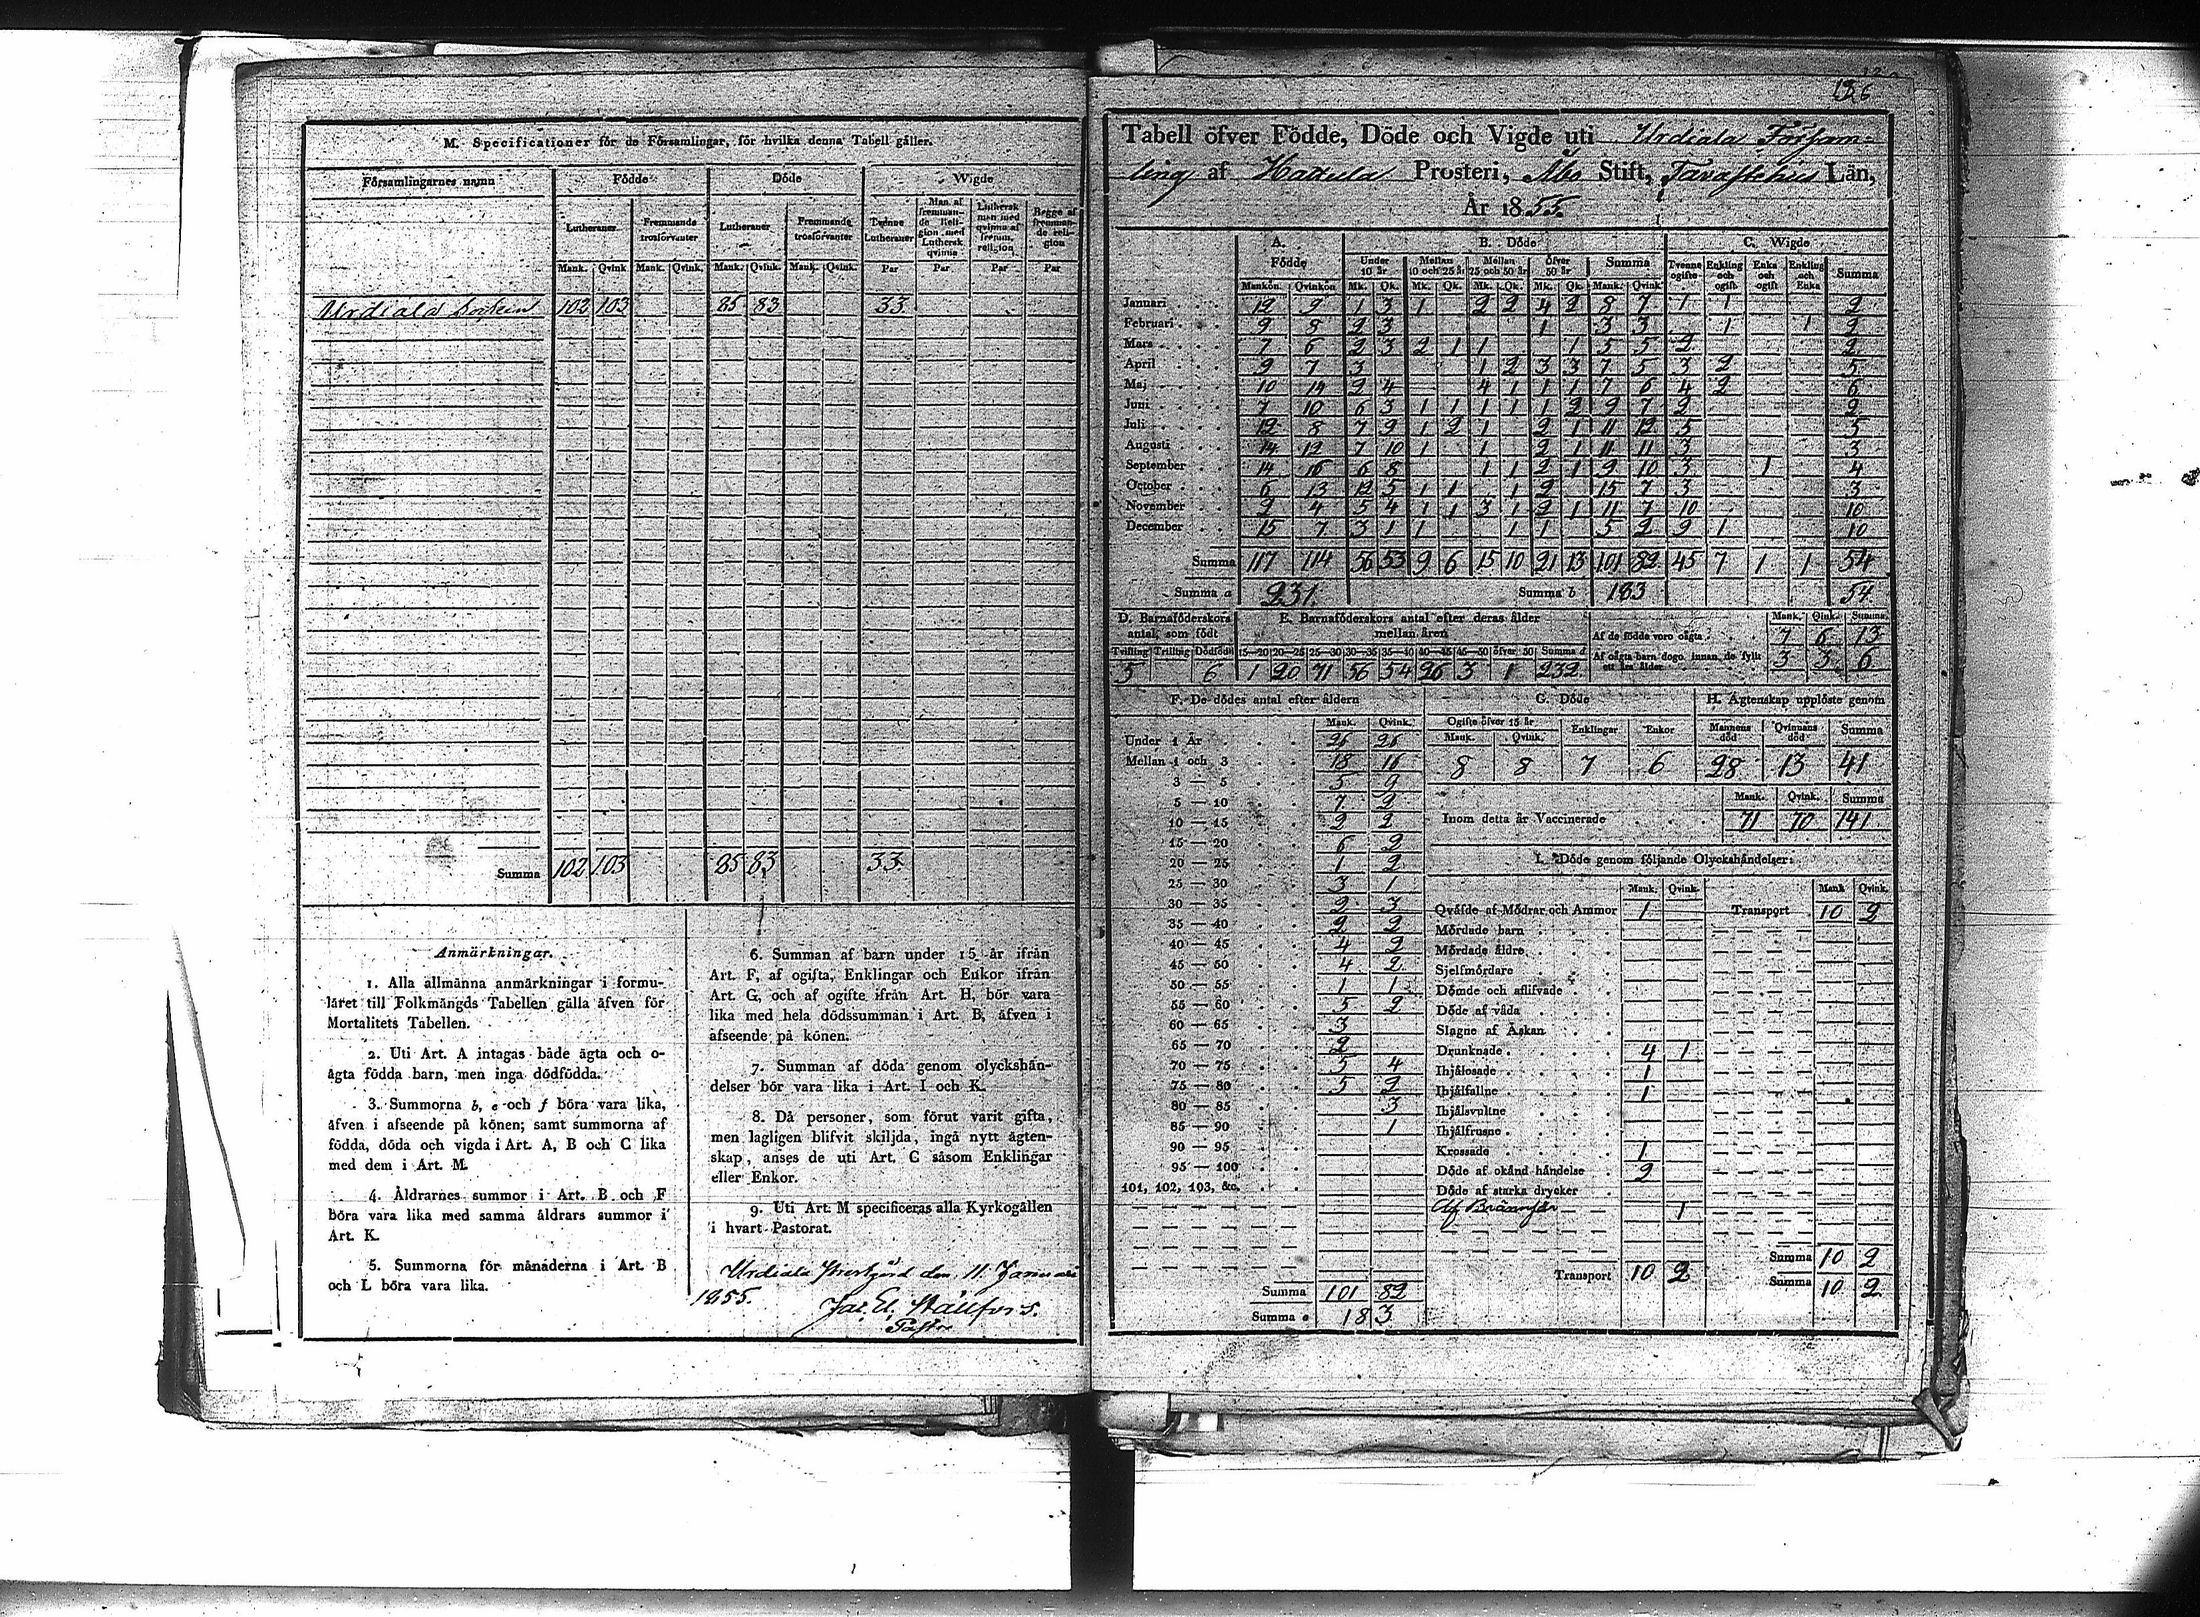 M. Specificationer för de Församlingar, för hvilka denna Tabell gäller.
Församlingarnes namn Födde Döde Wigde
Lutheraner Fremmande trosförvanter Lutheraner Fremmande trosförvanter Tvänne Lutheraner Man af fremmande Religion med Luthersk qvinna Luthersk man med qvinna af fremm. religion Begge af fremmande religion
Mank. Qvink. Mank. Qvink. Mank. Qvink. Mank. Qvink. Par Par Par Par
Urdiala 102 103 85 83 33
Summa 102 103 85 83 33
Anmärkningar.
1. Alla allmänna anmärkningar i formu-
läret till Folkmängds Tabellen gälla äfven för
Mortalitets Tabellen.
2. Uti Art. A intagas både ägta och o-
ägta födda barn, men inga dödfödda.
3. Summorna b, e och f böra vara lika,
äfven i afseende på könen; samt summorna af
födda, döda och vigda i Art. A, B och C lika
med dem i Art. M.
4. Åldrarnes summor i Art. B och F
böra vara lika med samma åldrars summor i
Art. K.
5. Summorna för månaderna i Art. B
och L böra vara lika.
6. Summan af barn under 15 år ifrån
Art. F, af ogifta, Enklingar och Enkor ifrån
Art. G, och af ogifte ifrån Art. H, bör vara
lika med hela dödssumman i Art. B, äfven i
afseende på könen.
7. Summan af döda genom olyckshän-
delser bör vara lika i Art. I och K.
8. Då personer, som förut varit gifta,
men lagligen blifvit skiljda, ingå nytt ägten-
skap, anses de uti Art. C såsom Enklingar
eller Enkor.
9. Uti Art. M specificeras alla Kyrkogällen
i hvart Pastorat.
Urdiala Prestgård den 11 Januari
1855.
126
Tabell öfver Födde, Döde och Vigde uti Urdiala Försam-
ling af Hattula Prosteri, Åbo Stift, Tavastehus Län,
År 1855.
A. Födde B. Döde C. Wigde
Under 10 år Mellan 10 och 25 år Mellan 25 och 50 år Öfver 50 år Summa Tvenne ogifte Enkling och ogift Enka och ogift Enkling och Enka Summa
Mankön. Qvinkön Mk. Qk. Mk. Qk. Mk. Qk. Mk. Qk. Mank. Qvink
Januari 12 9 1 3 1 2 2 4 2 8 7 1 1 2
Februari 9 8 2 3 1 3 3 1 1 2
Mars 7 6 2 3 2 1 1 1 5 5 2 2
April 9 7 3 1 2 3 3 7 5 3 2 5
Maj 10 14 2 4 4 1 1 1 7 6 4 2 6
Juni 7 10 6 3 1 1 1 1 1 2 9 7 2 2
Juli 12 8 7 9 1 2 1 2 1 11 12 5 5
Augusti 14 12 7 10 1 1 2 1 11 11 3 3
September 14 16 6 8 1 1 2 1 9 10 3 1 4
October 6 13 12 5 1 1 1 2 15 7 3 3
November 2 4 5 4 1 1 3 1 2 1 11 7 10 10
December 15 7 3 1 1 1 1 5 2 9 1 10
Summa 117 114 56 53 9 6 15 10 21 13 101 82 45 7 1 1 54
Summa a 231. Summa b 183 54
D. Barnaföderskors antal, som födt E. Barnaföderskors antal efter deras ålder mellan åren
Tvilling Trilling Dödfödt 15—20 20—25 25—30 30—35 35—40 40—45 45—50 öfver 50 Summa d
5 6 1 20 71 56 54 26 3 1 232.
Mank. Qink. Summa
Af de födda voro oägta 7 6 13
Af oägta barn dogo innan de fyllt ett års ålder 3 3 6
F. De dödes antal efter åldern
Mank. Qvink.
Under 1 År 26 26
Mellan 1 och 3 18 16
3 — 5 5 9
5 — 10 7 2
10 — 15 2 2
15 — 20 6 2
20 — 25 1 2
25 — 30 3 1
30 — 35 2 3
35 — 40 2 2
40 — 45 4 2
45 — 50 4 2
50 — 55 1 1
55 — 60 5 2
60 — 65 3
65 — 70 2
70 — 75 5 4
75 — 80 5 2
80 — 85 3
85 — 90 1
90 — 95
95 — 100
101, 102, 103, &c.
Summa 101 82
Summa e 183
G. Döde
Ogifte öfver 15 år Enklingar Enkor
Mank. Qvink.
8 8 7 6
H. Ägtenskap upplöste genom
Mannens död Qvinnans död Summa
28 13 41
Mank. Qvink. Summa
Inom detta år Vaccinerade 71 70 141
I. Döde genom följande Olyckshändelser:
Mank. Qvink. Mank Qvink.
Qväfde af Mödrar och Ammor 1 Transport 10 2
Mördade barn
Mördade äldre
Sjelfmördare
Dömde och aflifvade
Döde af våda
Slagne af Åskan
Drunknade 4 1
Ihjälosade 1
Ihjälfallne 1
Ihjälsvultne
Ihjälfrusne
Krossade 1
Döde af okänd händelse 2
Döde af starka drycker
Af Brännsår 1
Transport 10 2
Summa 10 2
Summa 10 2